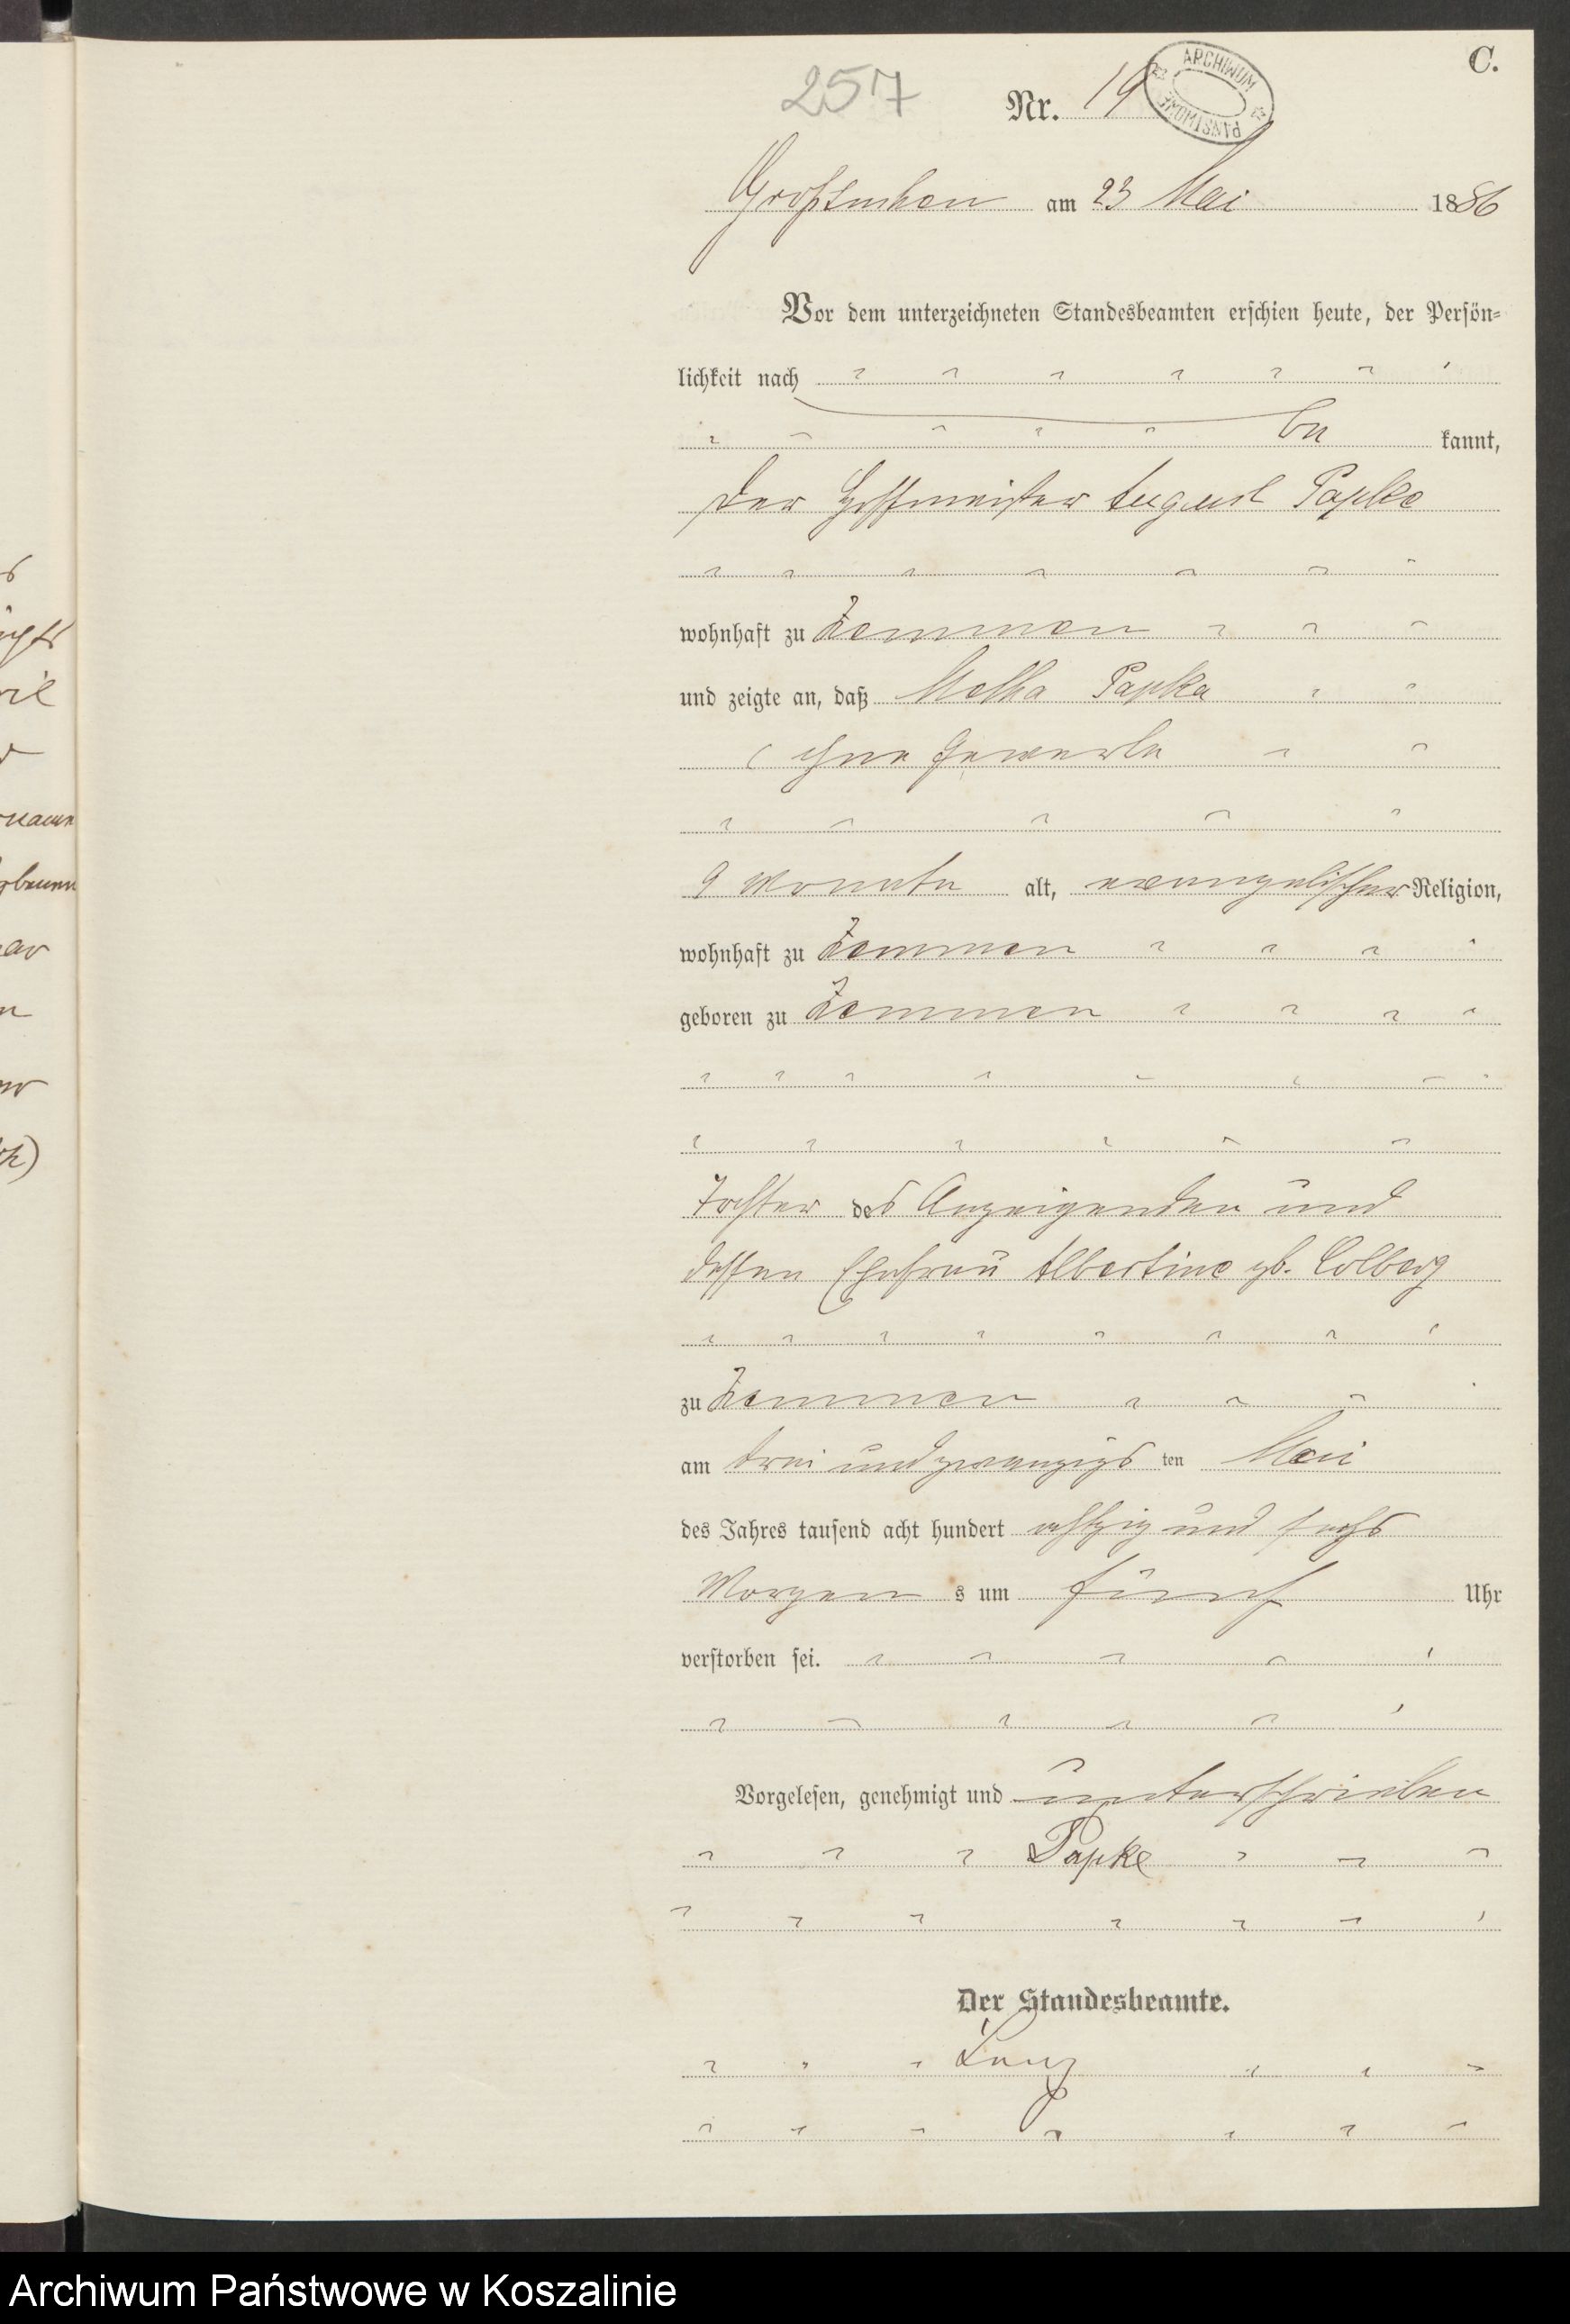 C.
257
Nr. 19
ARCHIWUM PAŃSTWOWE
Großtuchen am 23 Mai 1886
Vor dem unterzeichneten Standesbeamten erschien heute, der Persön-
lichkeit nach
be kannt,
der Hofmeister August Papke
wohnhaft zu Zemmen
und zeigte an, daß Papke
ohne Gewerbe
9 Monate alt, evangelischer Religion,
wohnhaft zu Zemmen
geboren zu Zemmen
Tochter des Anzeigenden und
dessen Ehefrau Albertine geb. Colberg
zu Zemmen
am drei und zwanzigs ten Mai
des Jahres tausend acht hundert achtzig und sechs
Morgen s um fünf Uhr
verstorben sei.
Vorgelesen, genehmigt und unterschrieben
Papke
Der Standesbeamte.
Archiwum Państwowe w Koszalinie